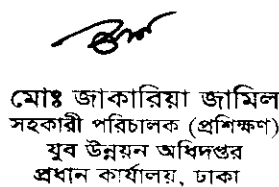 মোঃ জাকারিয়া জামিল
সহকারী পরিচালক (প্রশিক্ষণ)
যুব উন্নয়ন অধিদপ্তর
প্রধান কার্যালয়, ঢাকা